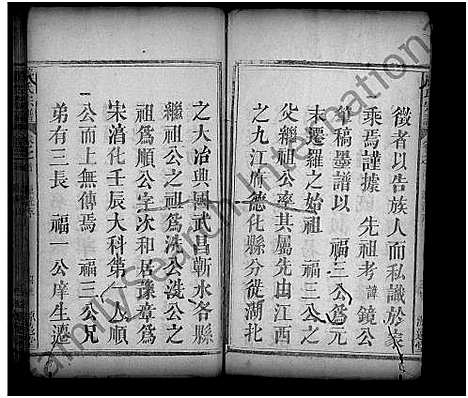 徵者以告族人而私識於家
乘焉謹據　先祖考諱鏡公
草稿墨譜以　福三公爲元
末遷羅之始祖　福三公之
父繼祖公率其屬先由江西
之九江府德化縣分徙湖北
之大冶興國武昌蘄水各縣
繼祖公之祖爲洗公洗公之
祖爲順公字次和居豫章爲
宋淯化壬辰大科第一人順
公而上無傳焉　福三公兄
弟有三長　福一公庠生遷
FamilySearch International